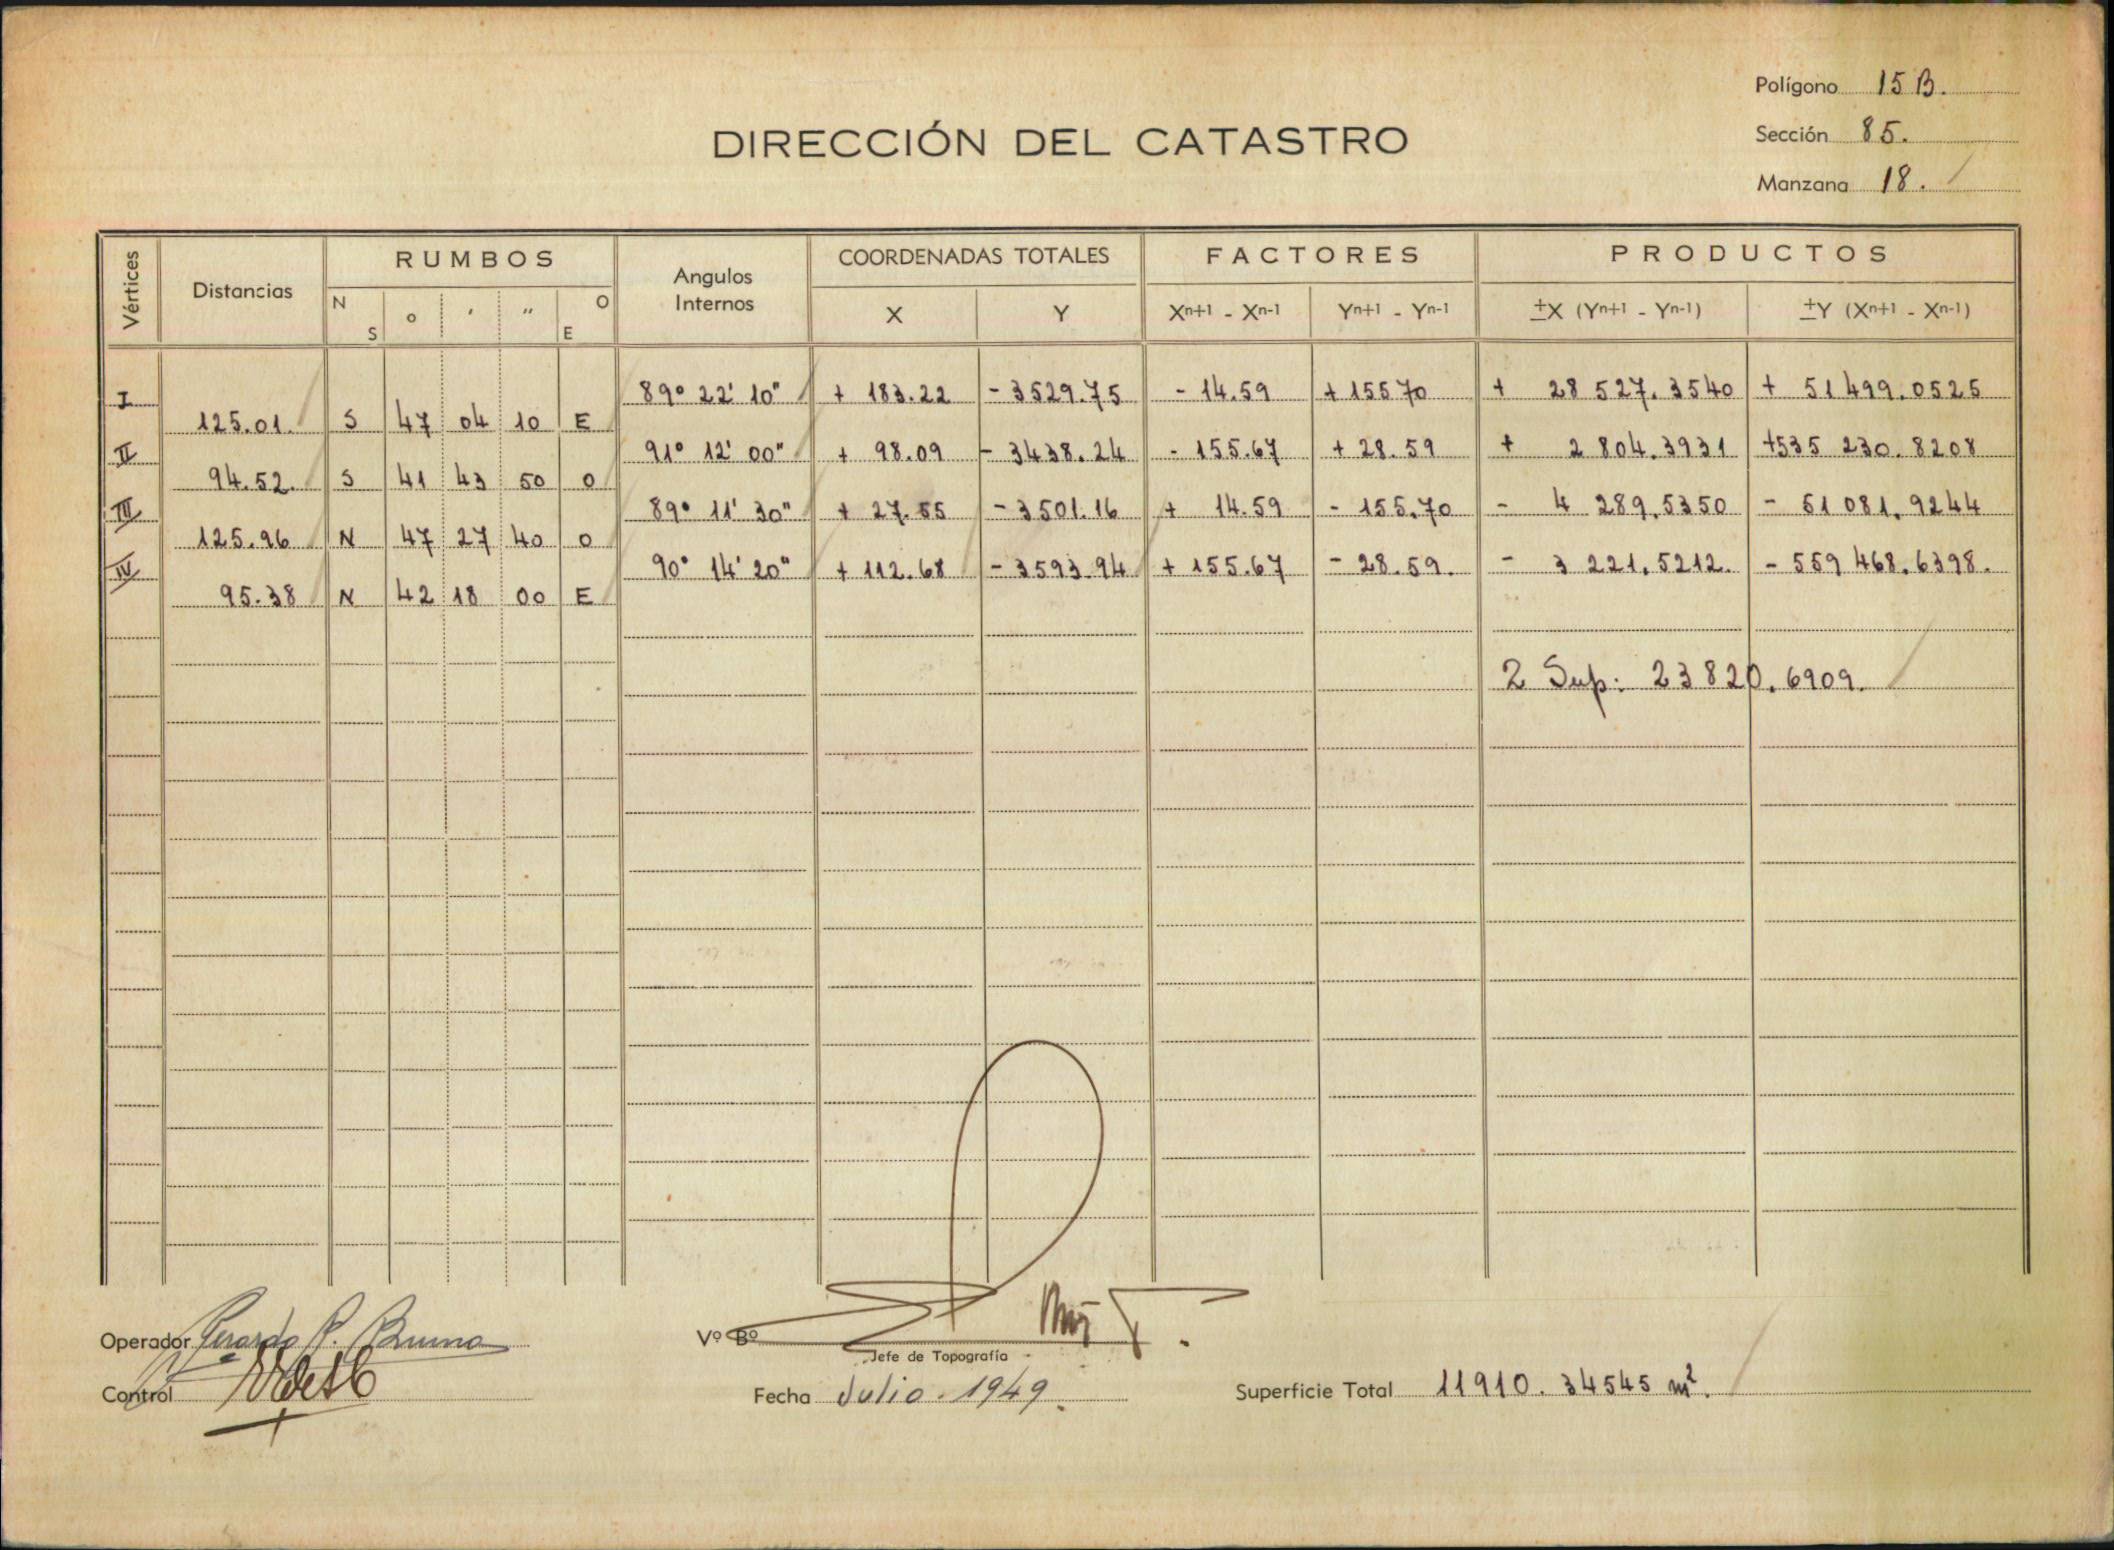 Polígono 15 B.
DIRECCIÓN DEL CATASTRO
Sección 85.
Manzana 18.
Vértices Distancias RUMBOS Angulos Internos COORDENADAS TOTALES FACTORES PRODUCTOS
N S o ' " O E X Y Xn+1 - Xn-1 Yn+1 - Yn-1 ±X (Yn+1 - Yn-1) ±Y (Xn+1 - Xn-1)
I 89° 22' 10" + 183.22 - 3529.75 - 14.59 + 15570 + 28 527.3540 + 51 499.0525
125.01. S 47 04 10 E
II 91° 12' 00" + 98.09 - 3438.24 - 155.67 + 28.59 + 2 804.3931 +535 230.8208
94.52. S 41 43 50 O
III 89° 11' 30" + 27.55 - 3501.16 + 14.59 - 155.70 - 4 289.5350 - 51 081.9244
125.96 N 47 27 40 O
IV 90° 14' 20" + 112.68 - 3593.94 + 155.67 - 28.59. - 3 221.5212. - 559 468.6398.
95.38 N 42 18 00 E
2 Sup: 23820.6909.
Operador Gerardo P. Bruno
Vº Bº
Jefe de Topografía
Control
Fecha Julio - 1949.
Superficie Total 11910.34545 m².